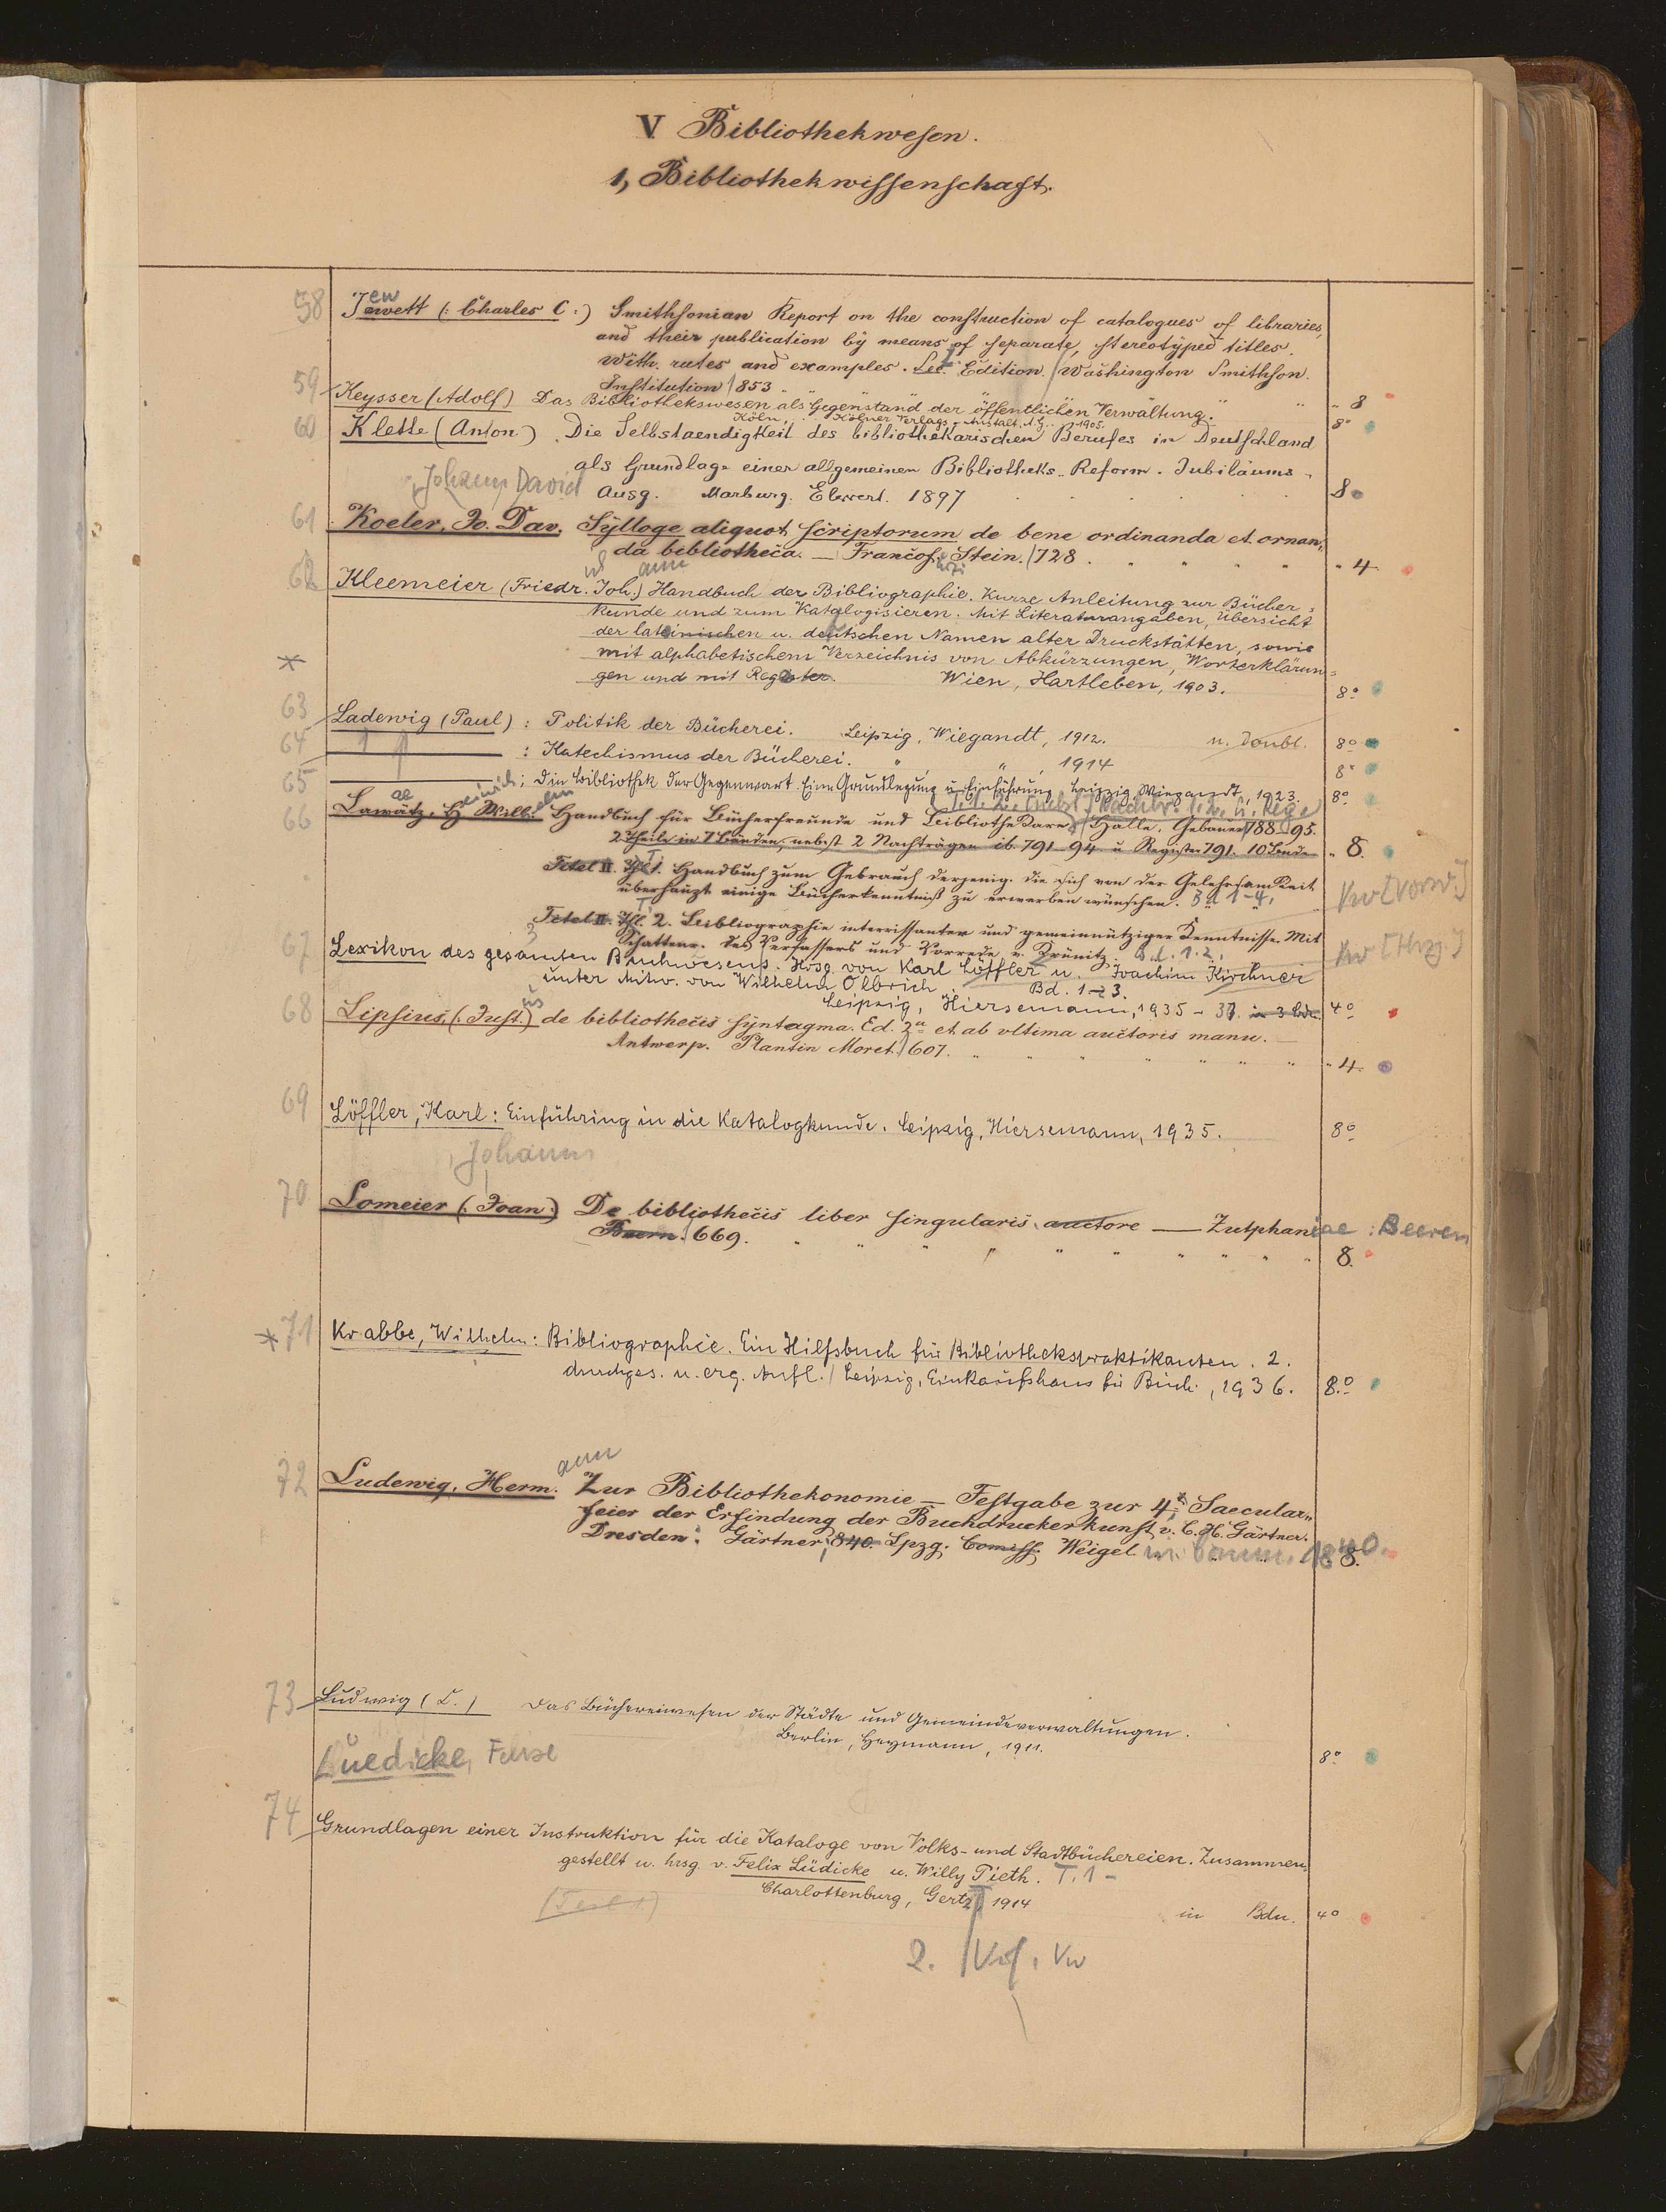 V Bibliothekwesen.
1, Bibliothekwissenschaft.
58 Jewett (: Charles C :) Smithsonian Report on the construction of catalogues of libraries,
and their publication by means of separate, stereotyped titles.
With. rules and examples. Sec. Edition. / Washington Smithson.
Institution 1853. " 8
59 Keysser (Adolf) Das Bibliothekswesen als Gegenstand der öffentlichen Verwaltung.
Köln, Kölner Verlags-Anstalt A.G. 1905. 8°
60 Klette (Anton) Die Selbstaendigkeit des bibliothekarischen Berufes in Deutschland
als Grundlage einer allgemeinen Bibliotheks-Reform. Jubiläums-
Ausg. Marburg. Elwert. 1897 8°
Johann David
61 Koeler, Jo. Dav. Sylloge aliquot scriptorum de bene ordinanda et ornan„
da bibliotheca. — Francof. Stein. 1728. " 4
62 Kleemeier (Friedr. Joh.) Handbuch der Bibliographie. Kurze Anleitung zur Bücher=
kunde und zum Katalogisieren. Mit Literaturangaben, Übersicht
der lateinischen u. deutschen Namen alter Druckstätten, sowie
mit alphabetischem Verzeichnis von Abkürzungen, Worterklärun=
gen und mit Register. Wien, Hartleben, 1903. 8°
*
63 Ladewig (Paul) : Politik der Bücherei. Leipzig, Wiegandt, 1912. u. Doubl. 8°
64 — : Katechismus der Bücherei. " , " , 1914 8°
65 — : Die Bibliothek der Gegenwart. Eine Grundlegung u. Einführung. Leipzig, Wiegandt, 1923. 8°
66 Lawätz, H. Wilh. Handbuch für Bücherfreunde und Bibliothekare / Halle, Gebauer 1788-95.
2 Theile in 7 Bänden, nebst 2 Nachträgen ib. 791-94 u Register 791. 10 Bände " 8.
Titel II. Thl 1. Handbuch zum Gebrauch derjenig. die sich von der Gelehrsamkeit
überhaupt einige Bücherkenntniß zu erwerben wünschen. Bd 1-4.
Titel II. Thl. 2. Bibliographie interrissanter und gemeinnütziger Kenntnisse. Mit
Schattenr. des Verfassers und Vorrede v. Krünitz. Bd. 1.2.
67 Lexikon des gesamten Buchwesens. Hrsg. von Karl Löffler u. Joachim Kirchner
unter Mitw. von Wilhelm Olbrich. Bd. 1-3.
Leipzig, Hiersemann, 1935-37. in 3 Bdn. 4°
68 Lipsius, (: Just. :) de bibliothecis syntagma. Ed. 2a et ab ultima auctoris manu. —
Antwerp. Plantin Moret. 1607. " 4.
69 Löffler, Karl: Einführung in die Katalogkunde. Leipzig, Hiersemann, 1935. 8°
Johann
70 Lomeier (: Joan :) De bibliothecis liber singularis auctore — Zutphaniae : Beeren
Beern. 1669. 8.
* 71 Krabbe, Wilhelm: Bibliographie. Ein Hilfsbuch für Bibliothekspraktikanten. 2.
durchges. u. erg. Aufl. / Leipzig, Einkaufshaus für Büch., 1936. 8.°
ann
72 Ludewig, Herm. Zur Bibliothekonomie — Festgabe zur 4t Saecular„
feier der Erfindung der Buchdruckerkunst v. C. H. Gärtner.
Dresden: Gärtner, 840. Lpzg. Comiss. Weigel in Comm. 1840. 8.
73 Ludwig (L.) Das Büchereiwesen der Städte und Gemeindeverwaltungen.
Berlin, Heymann, 1911. 8°
Luedicke, Felix
74 Grundlagen einer Instruktion für die Kataloge von Volks- und Stadtbüchereien. Zusammen„
gestellt u. hrsg. v. Felix Lüdicke u. Willy Pieth. T. 1 –
Charlottenburg, Gertz 1914
(Teil 1.) in Bdn. 4°
2.